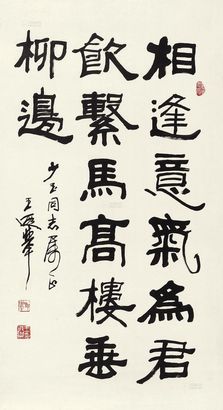 相逢意氣為君
飲繫馬高樓垂
柳邊
少玉同志属正
王遐舉